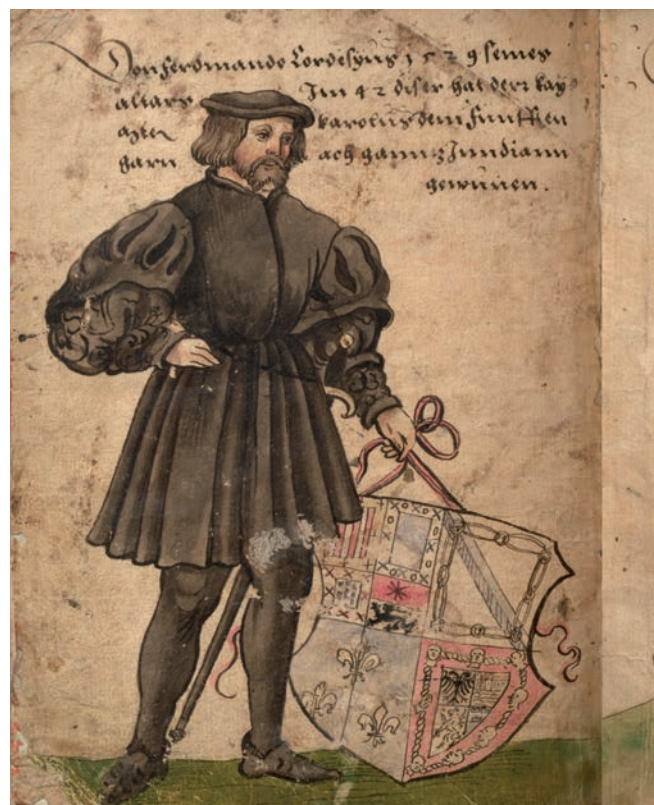 Don ferdinando Cordesyus 1529 seines
alltars Im 42 diser hat derr kay
Karolus dem funfften
ach gannz Inndiann
gewunen.